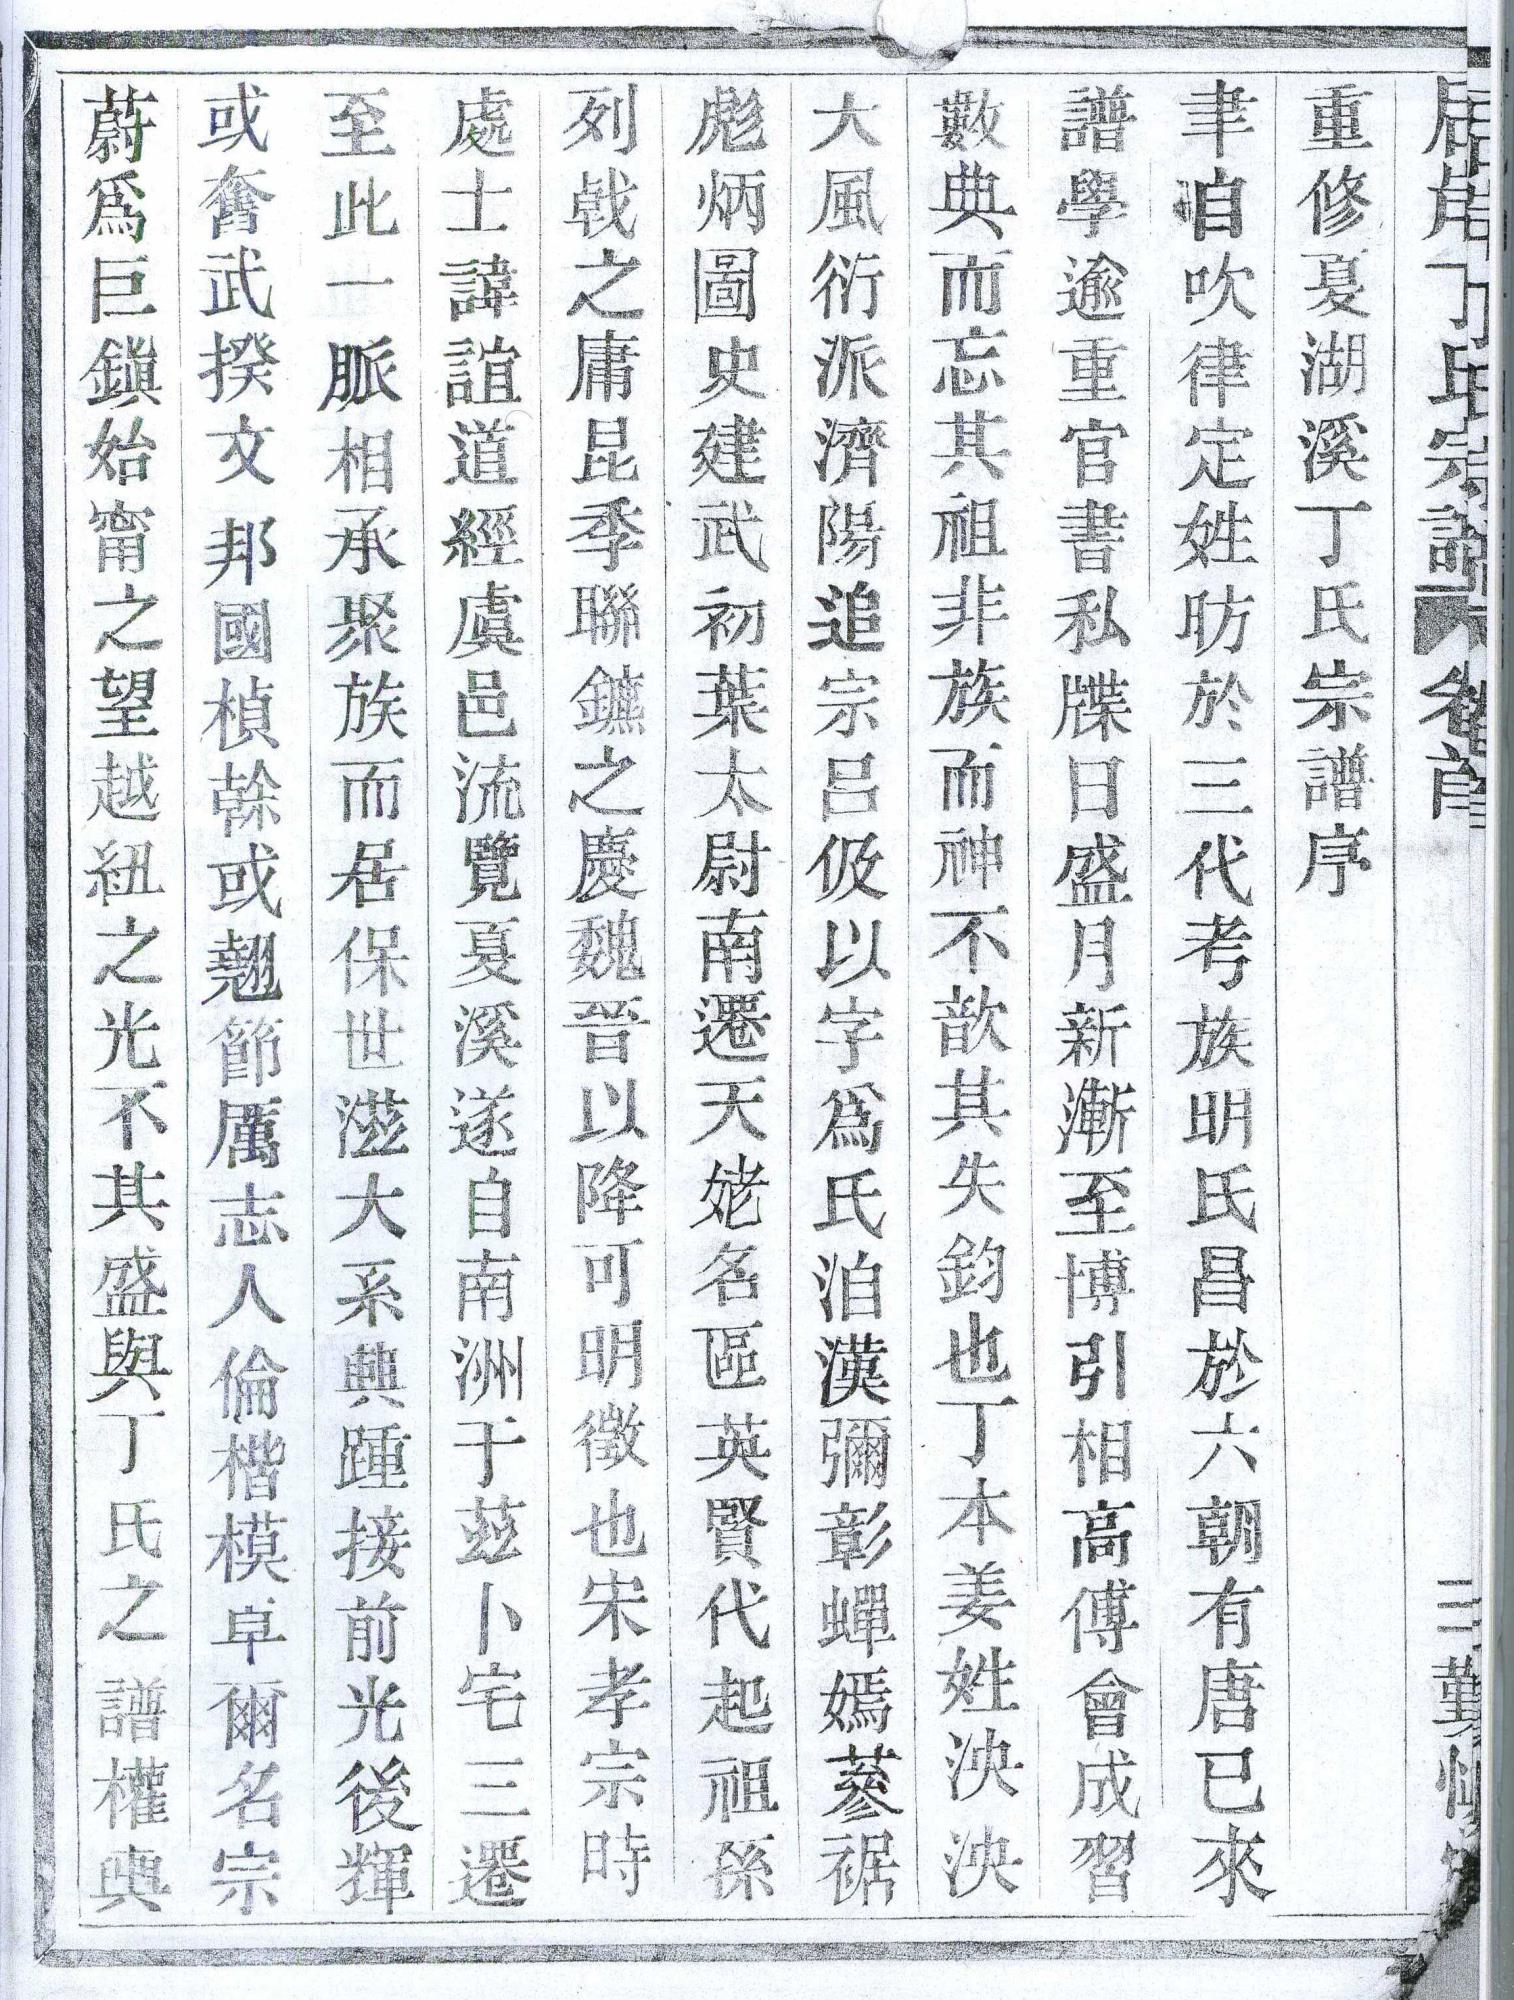 丁氏宗譜 卷首 三 勤
重修戛湖溪丁氏宗譜序
聿自吹律定姓昉於三代考族明氏昌於六朝有唐已來
譜學逾重官書私牒日盛月新漸至博引相高傅會成習
數典而忘其祖非族而神不歆其失鈞也丁本姜姓泱泱
大風衍派濟陽追宗呂伋以字爲氏洎漢彌彰蟬嫣蔘裾
彪炳圖史建武初葉太尉南遷天姥名區英賢代起祖孫
列戟之庸昆季聯鑣之慶魏晉以降可明徵也宋孝宗時
處士諱誼道經虞邑流覽戛溪遂自南洲于茲卜宅三遷
至此一脈相承聚族而居保世滋大系興踵接前光後輝
或奮武揆文邦國楨榦或翹節厲志人倫楷模卓爾名宗
蔚爲巨鎭始甯之望越紐之光不其盛與丁氏之譜權輿